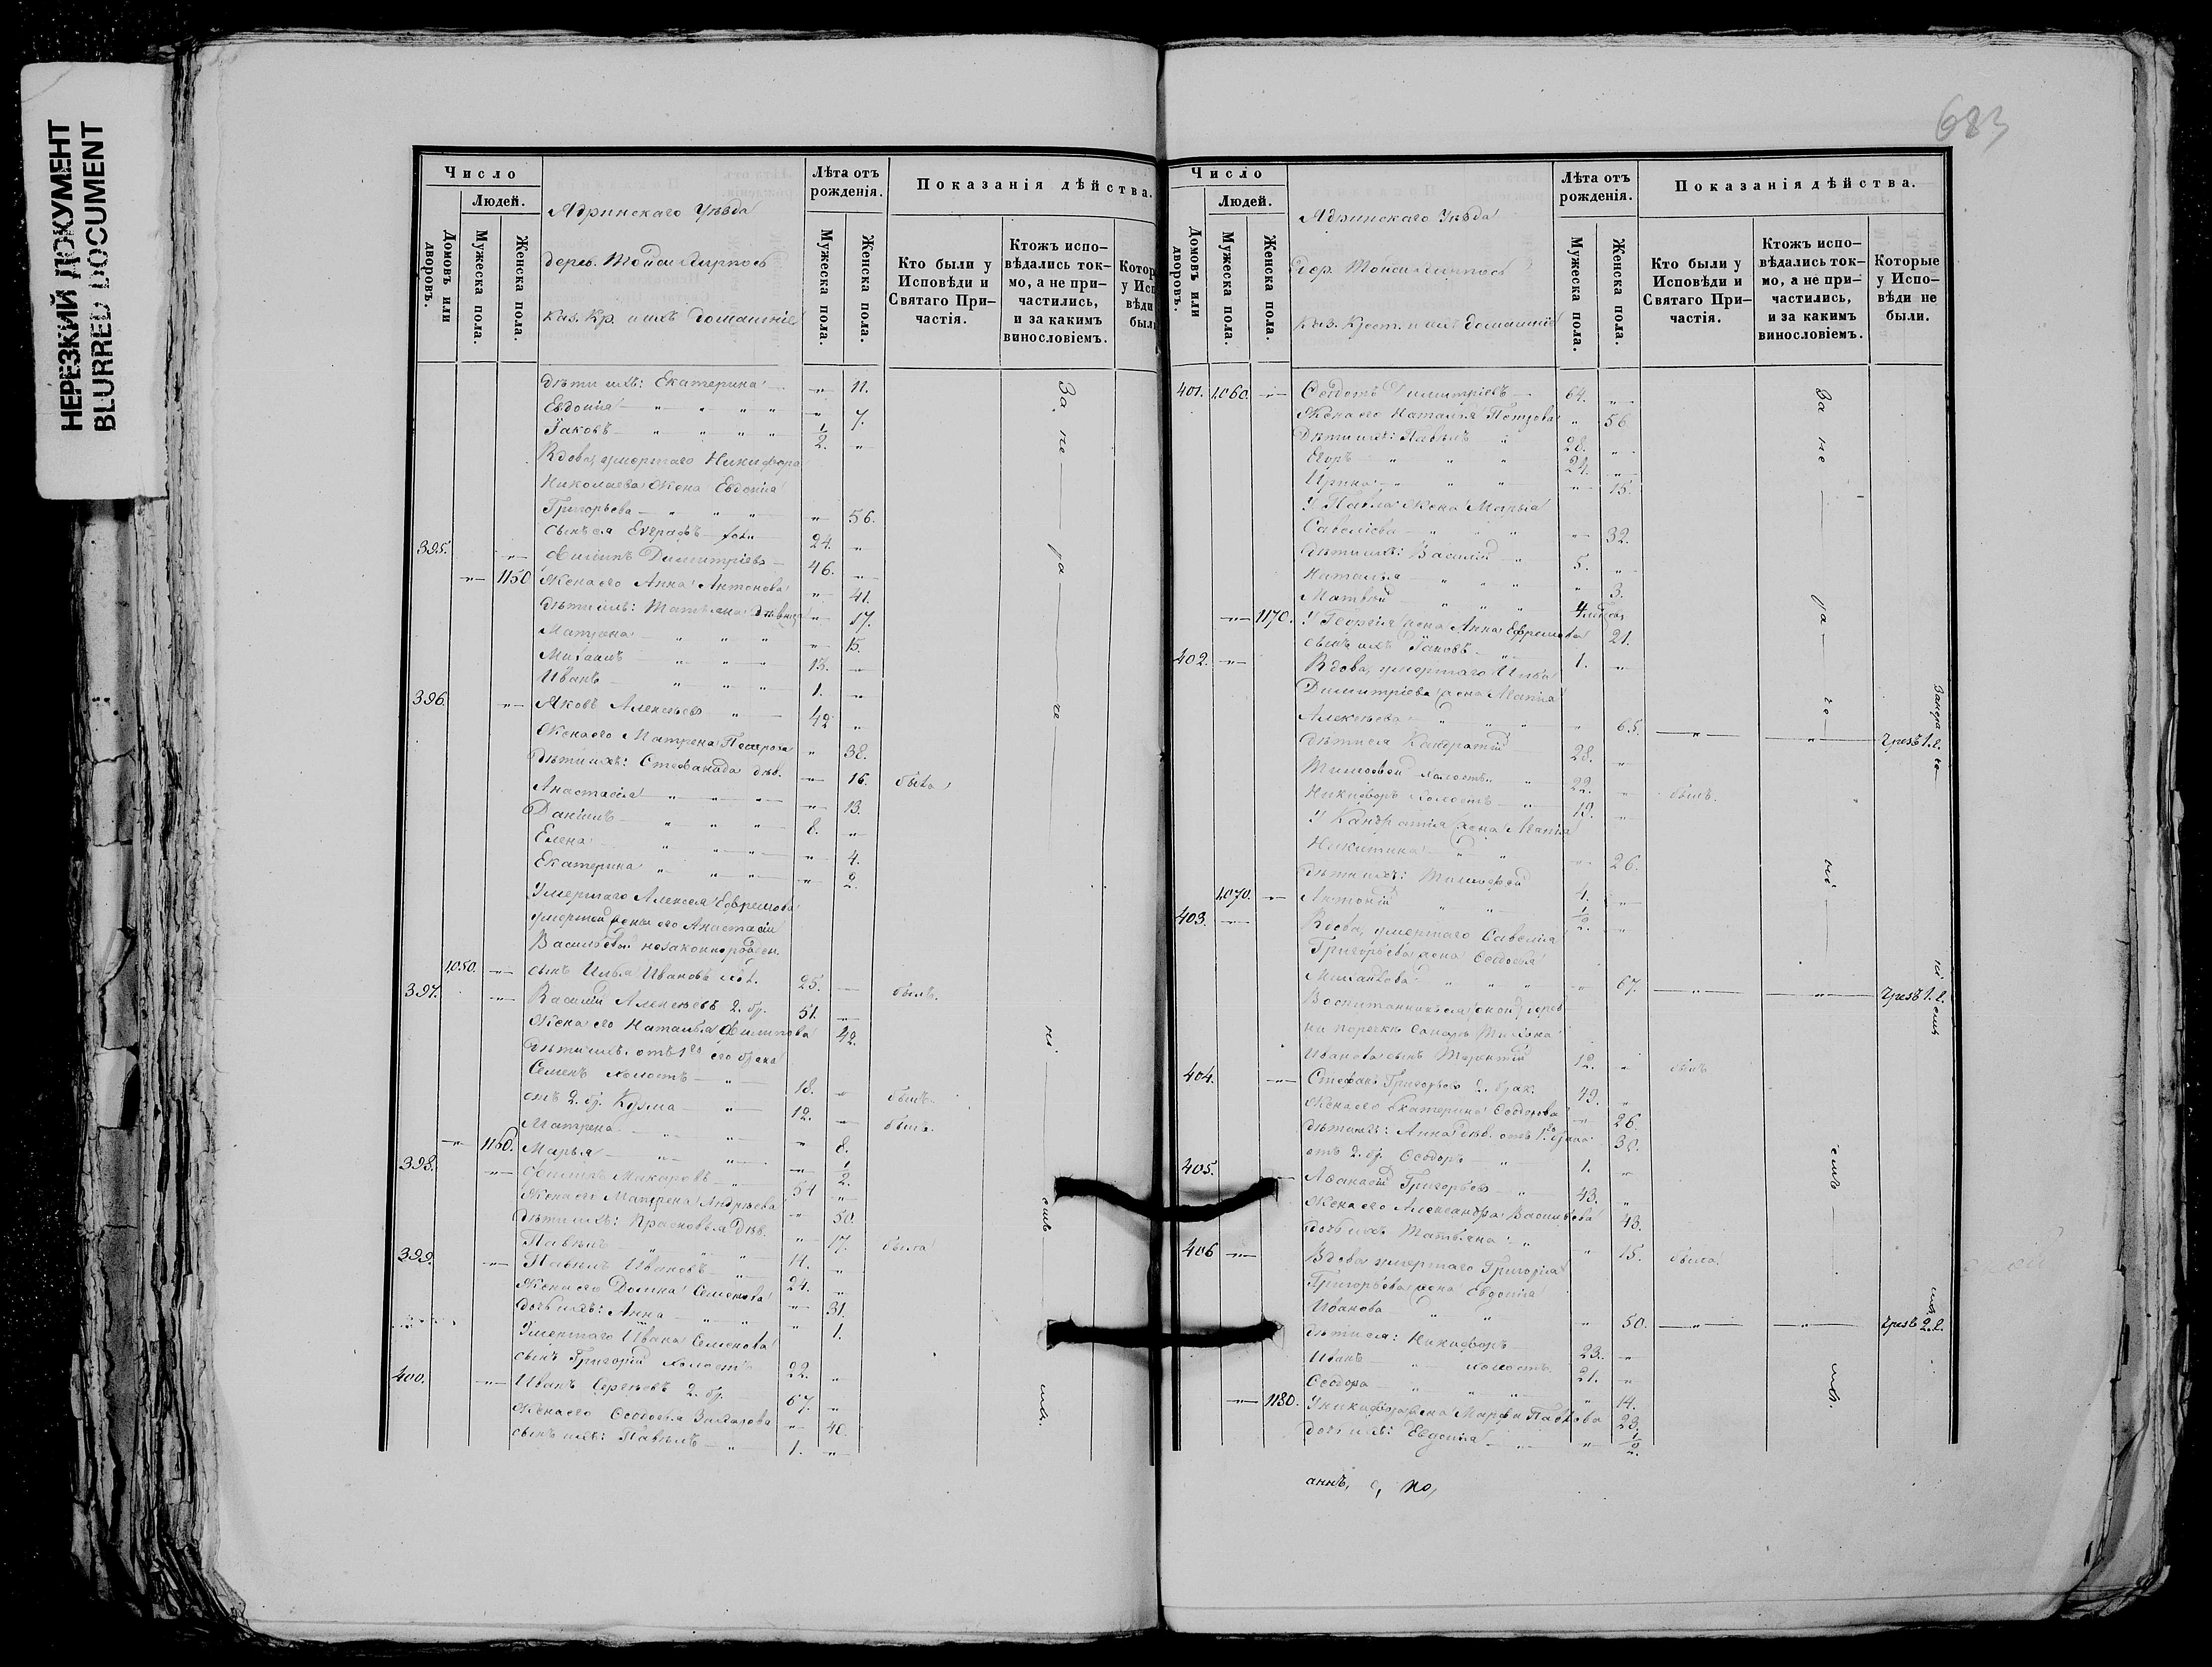 НЕРЕЗКИЙ ДОКУМЕНТ
BLURRED DOCUMENT
Число
Людей.
Домовъ или дворовъ.
Мужеска пола.
Женска пола.
Ядринскаго Уѣзда
дерев.
каз. Кр. и ихъ домашніе
Лѣта отъ рожденія.
Мужеска пола.
Женска пола.
Показанія дѣйства.
Кто были у Исповѣди и Святаго Причастія.
Ктожъ исповѣдались токмо, а не причастились, и за какимъ винословіемъ.
дѣти ихъ: Екатерина 11.
Евдокія 7.
Іаковъ 1/2.
Вдова, умершаго Никифора
Николаева жена Евдокія
Григорьева 56.
сынъ ея Евграфъ 24.
395. Филипъ Димитріевъ 46.
1150 Жена его Анна Антонова 41.
дѣти ихъ: Татьяна дѣвица 17.
Матрона 15.
Михаилъ 13.
Иванъ 1.
396. Яковъ Алексѣевъ 42
Жена его Матрена Петрова 38.
дѣти ихъ: Стефанида дѣв. 16. была
Анастасія 13.
Даніилъ 8.
Елена 4.
Екатерина 2.
Умершаго Алексея Ефремова
умершей жены его Анастасіи
Васильевой незаконнорожден.
1050. сынъ Илья Ивановъ хол. 25. былъ.
397. Василій Алексѣевъ 2. бр. 51.
Жена его Наталья Филипова 42.
дѣти ихъ. отъ 1го его брака
Семенъ холостъ 18. былъ.
отъ 2. бр. Кузма 12. былъ.
Матрена 8.
1160. Марья 1/2.
398. Филипъ Макаровъ 54
Жена его Матрена Андреева 50.
дѣти ихъ: Прасковья дѣв. 17. была
Павелъ 11.
399. Павелъ Ивановъ 24.
Жена его Домна Семенова 31.
дочь ихъ: Анна 1.
Умершаго Ивана Семенова
сынъ Григорій холостъ 22.
400. Иванъ Сергѣевъ 2. бр. 67.
Жена его Ѳеодосья 40.
сынъ ихъ: Павелъ 1.
683
Число
Людей.
Домовъ или дворовъ.
Мужеска пола.
Женска пола.
Ядринскаго Уѣзда
дер.
Каз. Крест. и ихъ домашніе
Лѣта отъ рожденія.
Мужеска пола.
Женска пола.
Показанія дѣйства.
Кто были у Исповѣди и Святаго Причастія.
Ктожъ исповѣдались токмо, а не причастились, и за какимъ винословіемъ.
Которые у Исповѣди не были.
401. 1060. Ѳедотъ Димитріевъ 64.
Жена его Наталья Петрова 56
Дѣти ихъ: Павелъ 28.
Егоръ 24.
Ирина 15.
У Павла жена Марья
Савеліева 32.
дѣти ихъ: Василій 5.
Наталья 3.
Матвей 4
1170. У Георгія жена Анна Ефремова 21.
сынъ ихъ Іаковъ 1.
402. Вдова, умершаго Ильи
Димитріева жена Марія
Алексѣева 65. чрезъ 1. л.
дѣти ея Кондратій 28.
Тимофей холостъ 22. былъ.
Никифоръ холостъ 19.
У Кандратія жена Марія
Никитина 26.
дѣти ихъ: Тимофей 4.
1070. Антоній 1/2.
403. Вдова, умершаго Савелія
Григорьева жена Ѳеодосья
Михайлова 67. чрезъ 1. л.
Иванова сынъ Терентій 12. былъ
404. Стефанъ Григорьевъ 2. брак. 49.
Жена его Екатерина Ѳеодорова 26.
дѣти ихъ: Анна дѣв. отъ 1го брака 30.
отъ 2. бр. Ѳеодоръ 1.
405. Аѳанасій Григорьевъ 43.
Жена его Александра Васильева 43.
дочь ихъ Татьяна 15. была.
406 Вдова умершаго Григорія
Григорьева жена Евдокія
Иванова 50. чрезъ 2. л.
дѣти ея: Никифоръ 23.
Иванъ холостъ 21.
Ѳеодора 14.
1180. У Никифора жена Марфа Павлова 23.
дочь ихъ: Евдокія 1/2.